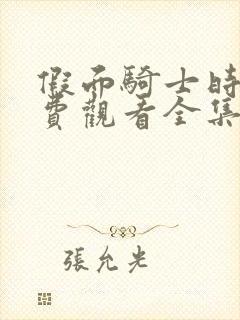 假面騎士時
費觀看全集
張允光